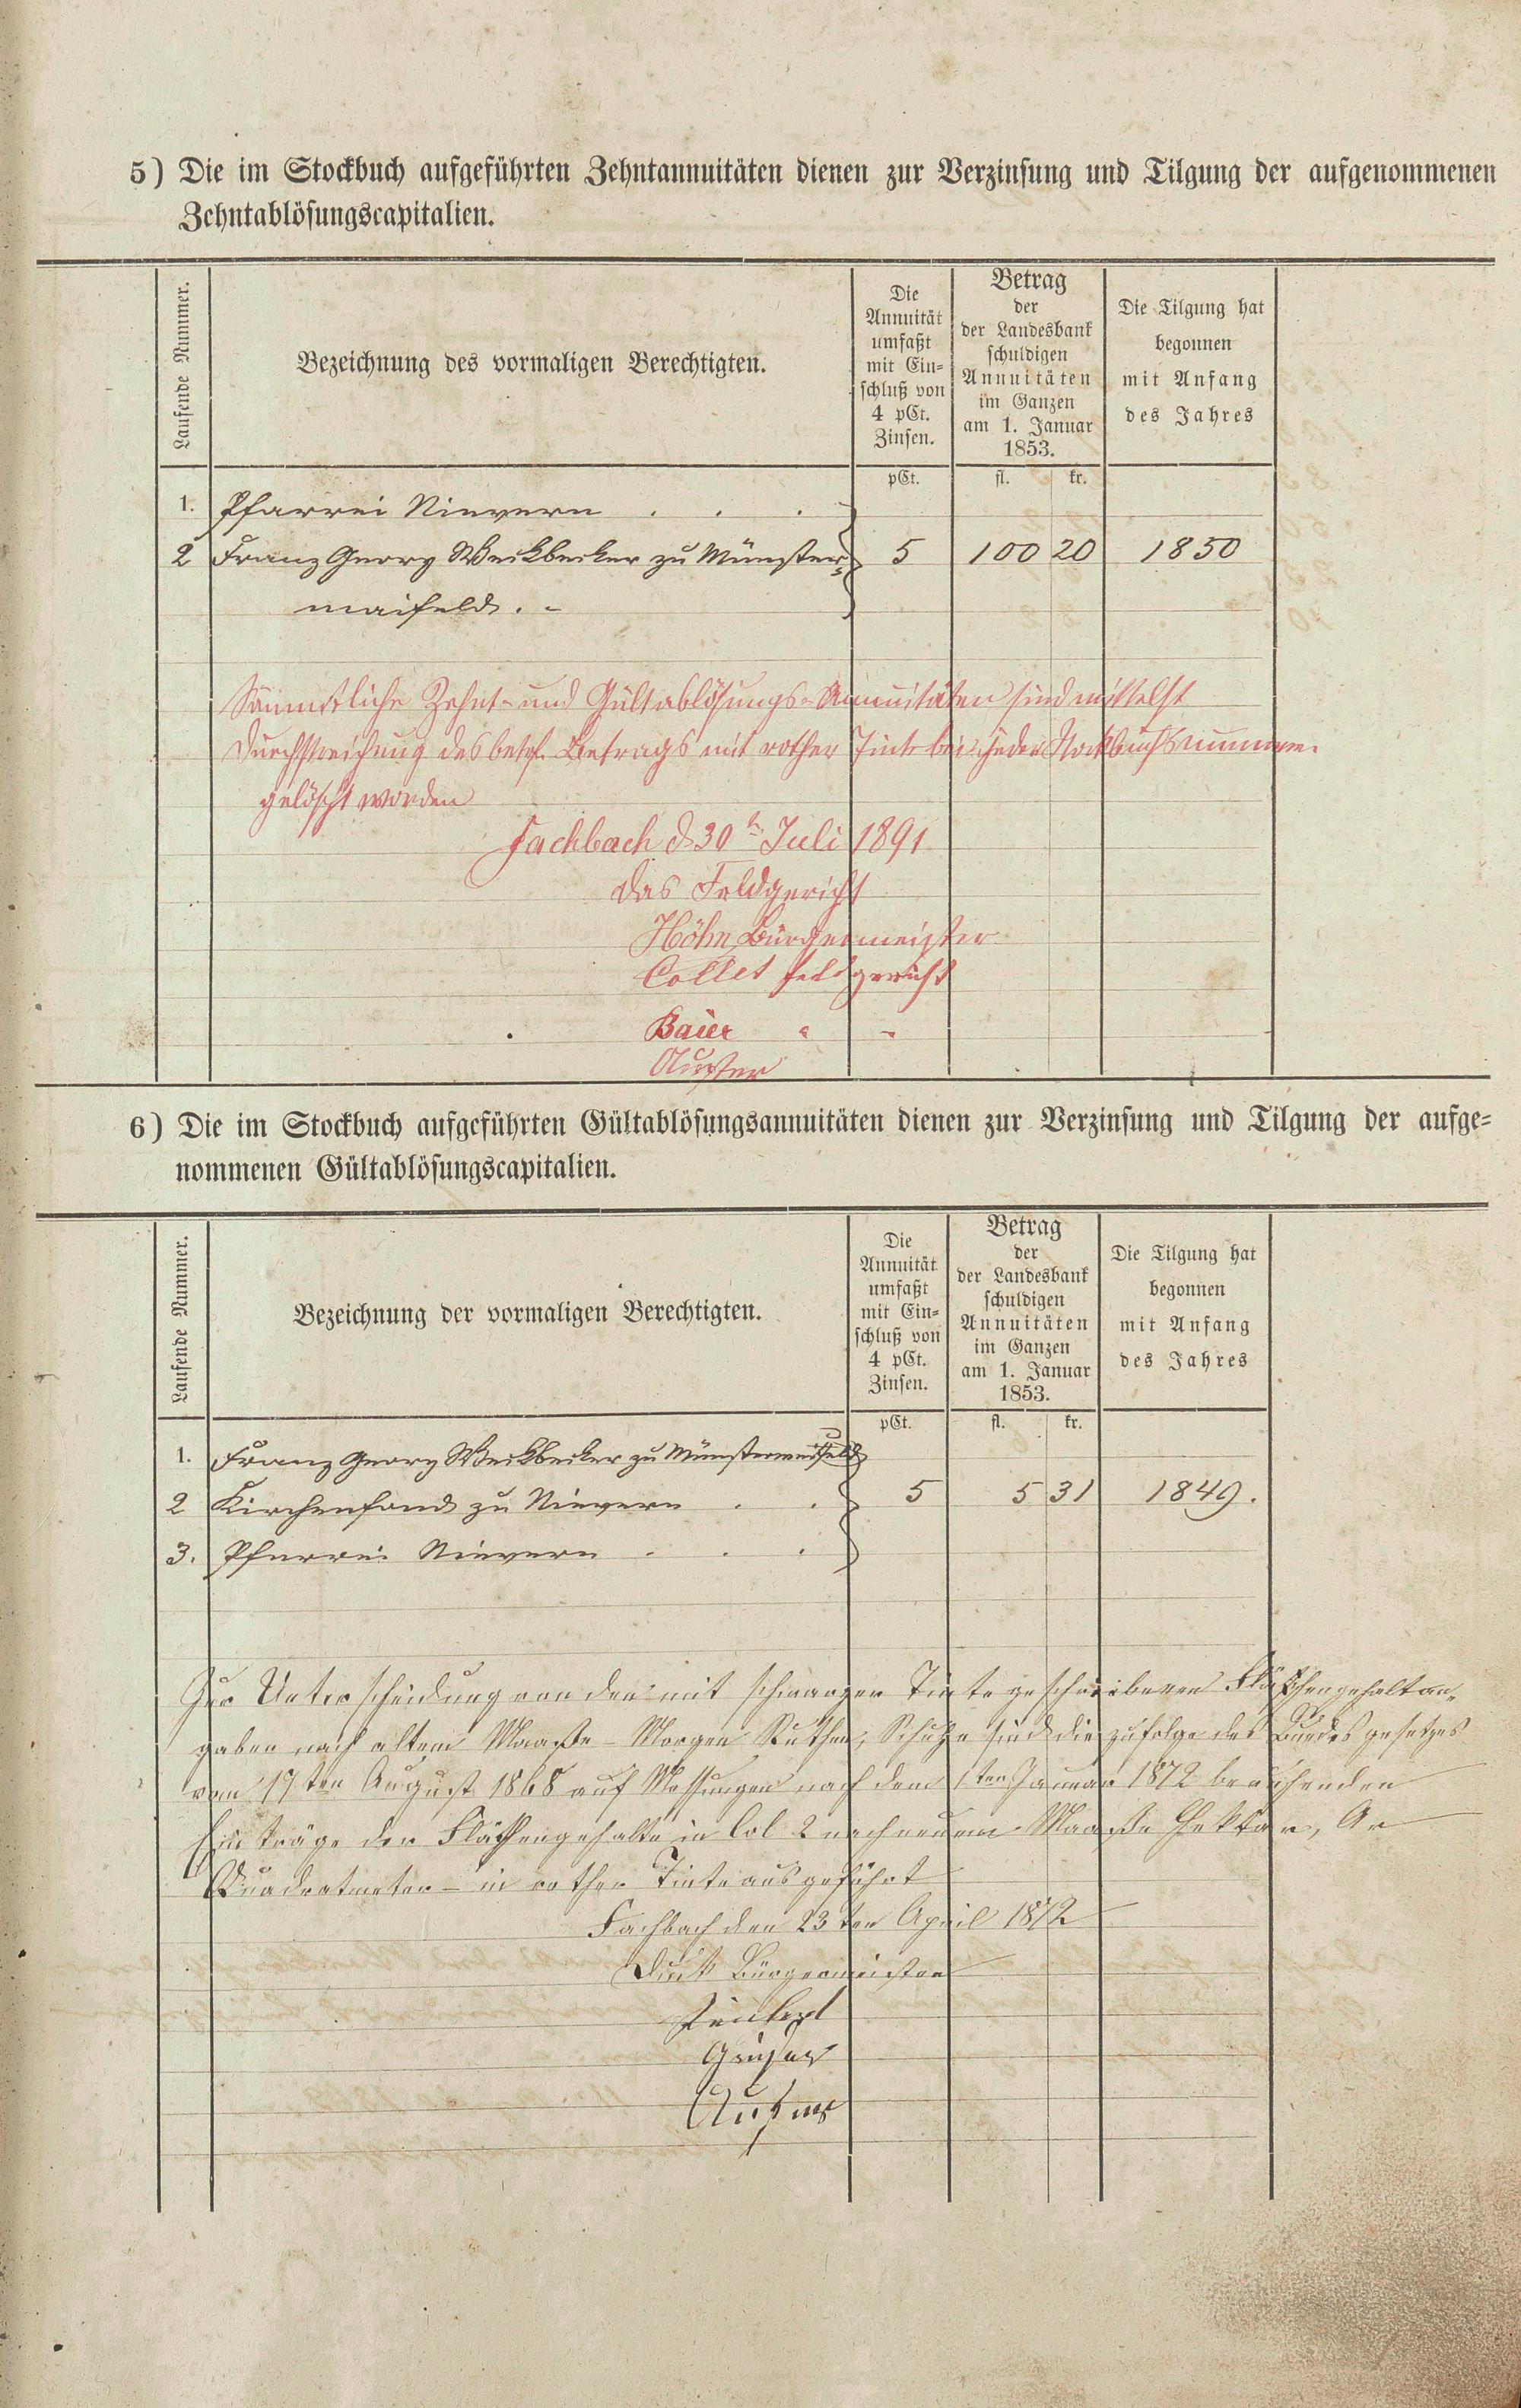 5) Die im Stockbuch aufgeführten Zehntannuitäten dienen zur Verzinsung und Tilgung der aufgenommenen
Zehntablösungscapitalien.
Laufende Nummer.
Bezeichnung des vormaligen Berechtigten.
Die
Annuität
umfaßt
mit Ein=
schluß von
4 pCt.
Zinsen.
Betrag
der
der Landesbank
schuldigen
Annuitäten
im Ganzen
am 1. Januar
1853.
Die Tilgung hat
begonnen
mit Anfang
des Jahres
pCt. fl. kr.
1. Pfarrei Nievern . . .
2 Franz Georg Weckbecker zu Münster= 5 100 20 1850
maifeld. -
Sämmtliche Zehnt- und Gültablösungs-Annuitäten sind mittelst
Durchstreichung des betrf. Betrags mit rother Tinte bei jeder Stockbuchsnummer
gelöscht worden
Fachbach d. 30t. Juli 1891
Das Feldgericht
Höhn Bürgermeister
Collet Feldgericht
Baier " "
6) Die im Stockbuch aufgeführten Gültablösungsannuitäten dienen zur Verzinsung und Tilgung der aufge=
nommenen Gültablösungscapitalien.
Laufende Nummer.
Bezeichnung der vormaligen Berechtigten.
Die
Annuität
umfaßt
mit Ein=
schluß von
4 pCt.
Zinsen.
Betrag
der
der Landesbank
schuldigen
Annuitäten
im Ganzen
am 1. Januar
1853.
Die Tilgung hat
begonnen
mit Anfang
des Jahres
pCt. fl. kr.
1. Franz Georg Weckbecker zu Münstermaifeld
2 Kirchenfond zu Nievern . . 5 5 31 1849.
3. Pfarrei Nievern . . .
Zur Unterscheidung von den mit schwarzer Tinte geschriebenen Flächengehaltan=
gaben nach altem Maaße - Morgen Ruthen, Schuhe sind die zufolge des Bundesgesetzes
vom 17ten August 1868 auf Messungen nach dem 1ten Januar 1872 beruhenden
Einträge der Flächengehalte in Col 2 nach neuem Maaße Hektar, Ar
Quadratmeter - in rother Tinte ausgeführt
Fachbach den 23ten April 1872
Bürgermeister